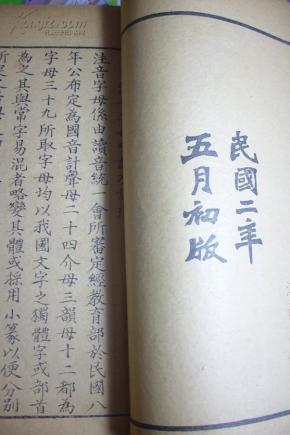 民國二年
五月初版
注音字母係由讀音統一會所審定經教育部於民國八
年公布定為國音計聲母二十四介母三韻母十二都為
字母三十九所取字母均以我國文字之獨體字或部首
為之其與常字易混者略變其體或採用小篆以便分別